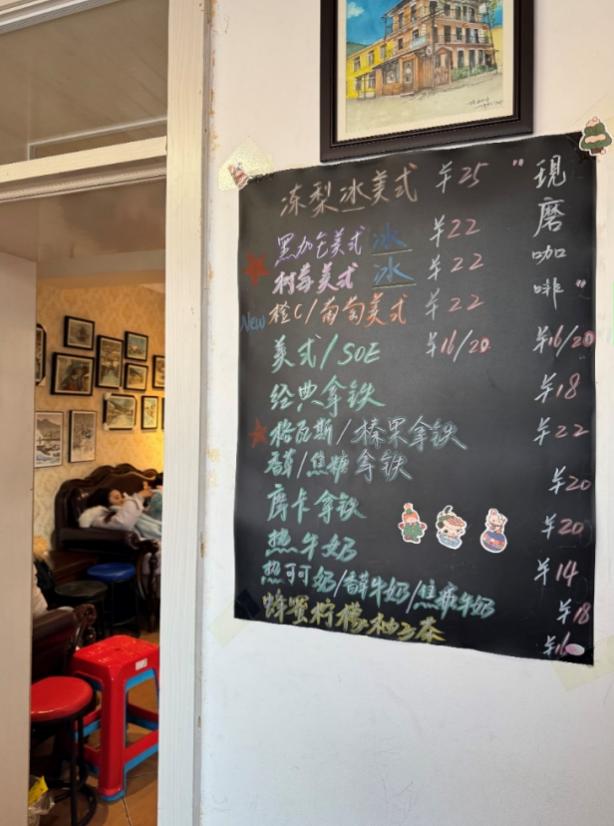 冻梨冰美式 ¥25
"现磨咖啡"
黑加仑美式 冰 ¥22
树莓美式 冰 ¥22
New 橙C/葡萄美式 ¥22
美式/SOE ¥16/20 ¥16/20
经典拿铁 ¥18
格瓦斯/榛果拿铁 ¥22
香草/焦糖拿铁 ¥20
摩卡拿铁 ¥20
热牛奶 ¥14
热可可奶/香草牛奶/焦糖牛奶 ¥18
蜂蜜柠檬柚子茶 ¥16